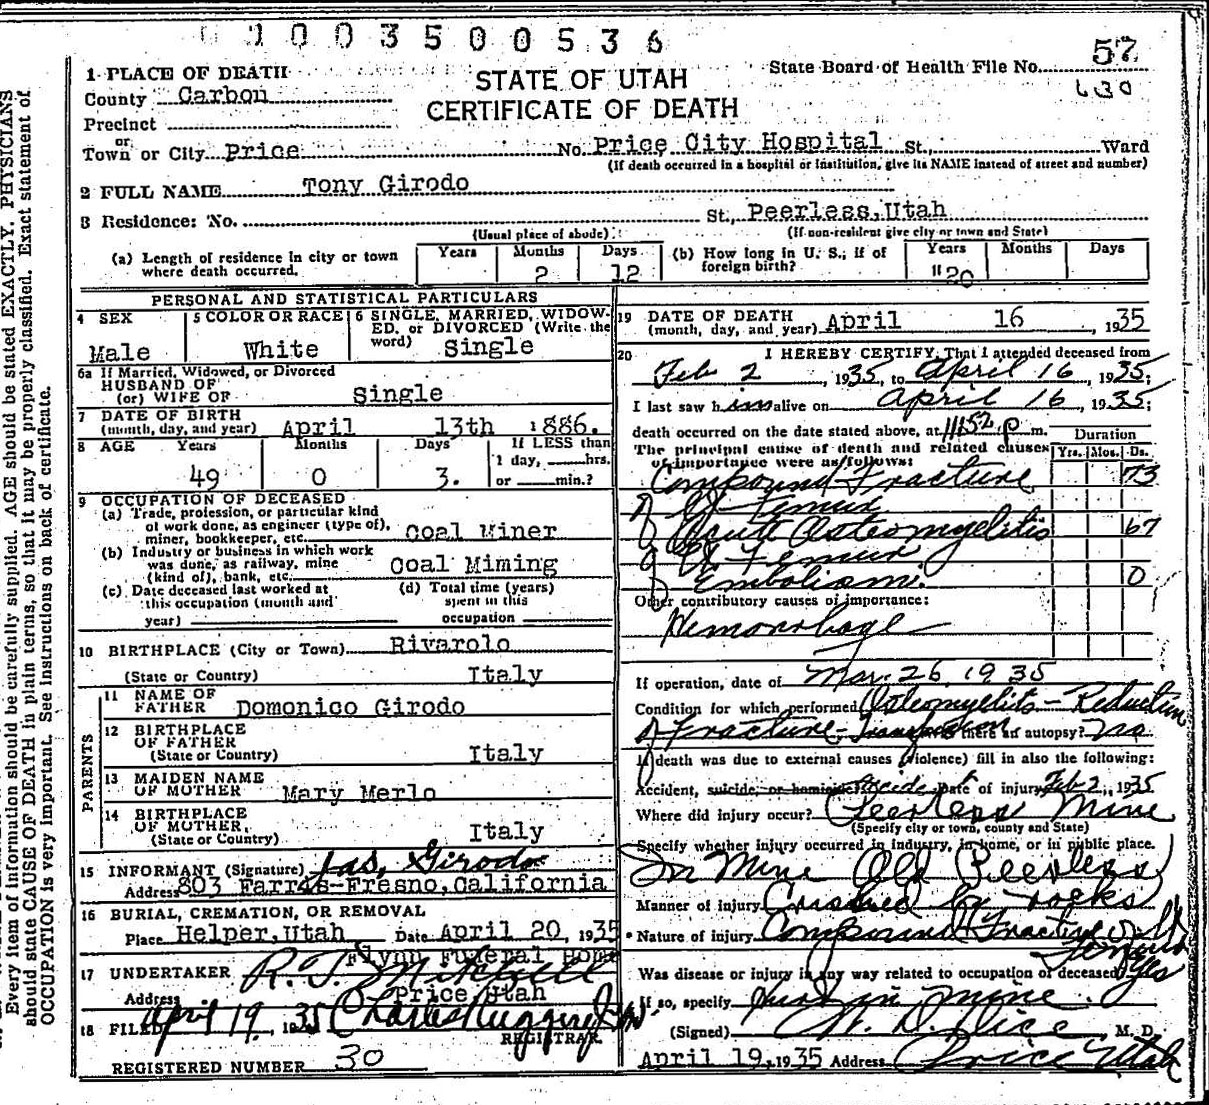 01003500536
57
1 PLACE OF DEATH
STATE OF UTAH
State Board of Health File No.
630
County Carbon
CERTIFICATE OF DEATH
Precinct
or
Town or City Price No. Price City Hospital St., Ward
(If death occurred in a hospital or institution, give its NAME instead of street and number)
2 FULL NAME Tony Girodo
3 Residence: No. St., Peerless, Utah
(Usual place of abode) (If non-resident give city or town and State)
(a) Length of residence in city or town where death occurred. Years Months 2 Days 12 (b) How long in U. S.; if of foreign birth? Years "20 Months Days
PERSONAL AND STATISTICAL PARTICULARS
4 SEX Male
5 COLOR OR RACE White
6 SINGLE, MARRIED, WIDOWED, or DIVORCED (Write the word) Single
6a If Married, Widowed, or Divorced
HUSBAND OF
(or) WIFE OF Single
7 DATE OF BIRTH
(month, day, and year) April 13th 1886.
8 AGE Years 49 Months 0 Days 3. If LESS than 1 day, hrs. or min.?
9 OCCUPATION OF DECEASED
(a) Trade, profession, or particular kind
of work done, as engineer (type of),
miner, bookkeeper, etc. Coal Miner
(b) Industry or business in which work
was done, as railway, mine
(kind of), bank, etc. Coal Miming
(c) Date deceased last worked at
this occupation (month and
year)
(d) Total time (years)
spent in this
occupation
10 BIRTHPLACE (City or Town) Rivarolo
(State or Country) Italy
PARENTS
11 NAME OF
FATHER Domonico Girodo
12 BIRTHPLACE
OF FATHER
(State or Country) Italy
13 MAIDEN NAME
OF MOTHER Mary Merlo
14 BIRTHPLACE
OF MOTHER,
(State or Country) Italy
15 INFORMANT (Signature) Jas, Girodo
Address 803 Farris-Fresno, California
16 BURIAL, CREMATION, OR REMOVAL
Place Helper, Utah Date April 20, 1935
Flynn Funeral Home
17 UNDERTAKER R. T. Mitchell
Address Price Utah
18 FILED April 19, 1935
REGISTRAR
REGISTERED NUMBER 30
19 DATE OF DEATH
(month, day, and year) April 16, 1935
20 I HEREBY CERTIFY, That I attended deceased from
Feb 2, 1935, to April 16, 1935;
I last saw him alive on April 16, 1935;
death occurred on the date stated above, at 11:52 p m.
The principal cause of death and related causes
of importance were as follows:
Duration
Yrs. Mos. Ds.
Compound Fracture 73
of Femur
Acute Osteomyelitis 67
of Femur
Embolism. 0
Other contributory causes of importance:
Hemorrhage
If operation, date of Mar. 26, 1935
Condition for which performed Osteomyelits - Reduction
of Fracture - Transfusion Was there an autopsy? no
If death was due to external causes (violence) fill in also the following:
Accident, suicide, or homicide? Accide Date of injury Feb 2, 1935
Where did injury occur? Peerless Mine
(Specify city or town, county and State)
Specify whether injury occurred in industry, in home, or in public place.
In Mine Old Peerless
Manner of injury Crushed by rocks
Nature of injury Compound Fracture of Femur
Was disease or injury in any way related to occupation of deceased? yes
If so, specify Hurt in mine.
(Signed) M. D.
April 19, 1935 Address Price Utah
Every item of information should be carefully supplied. AGE should be stated EXACTLY. PHYSICIANS
should state CAUSE OF DEATH in plain terms, so that it may be properly classified. Exact statement of
OCCUPATION is very important. See instructions on back of certificate.